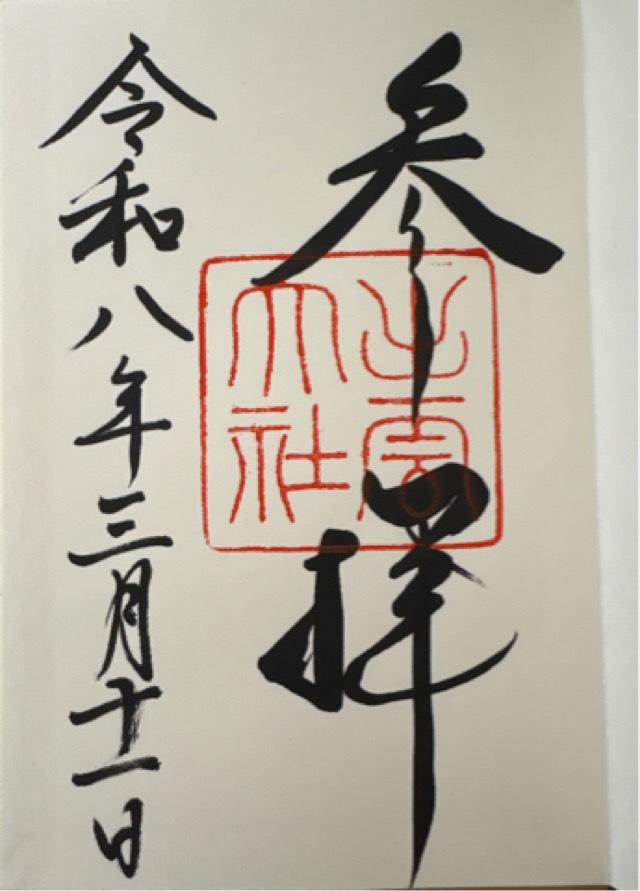 参拝
出雲
大社
令和八年三月十一日